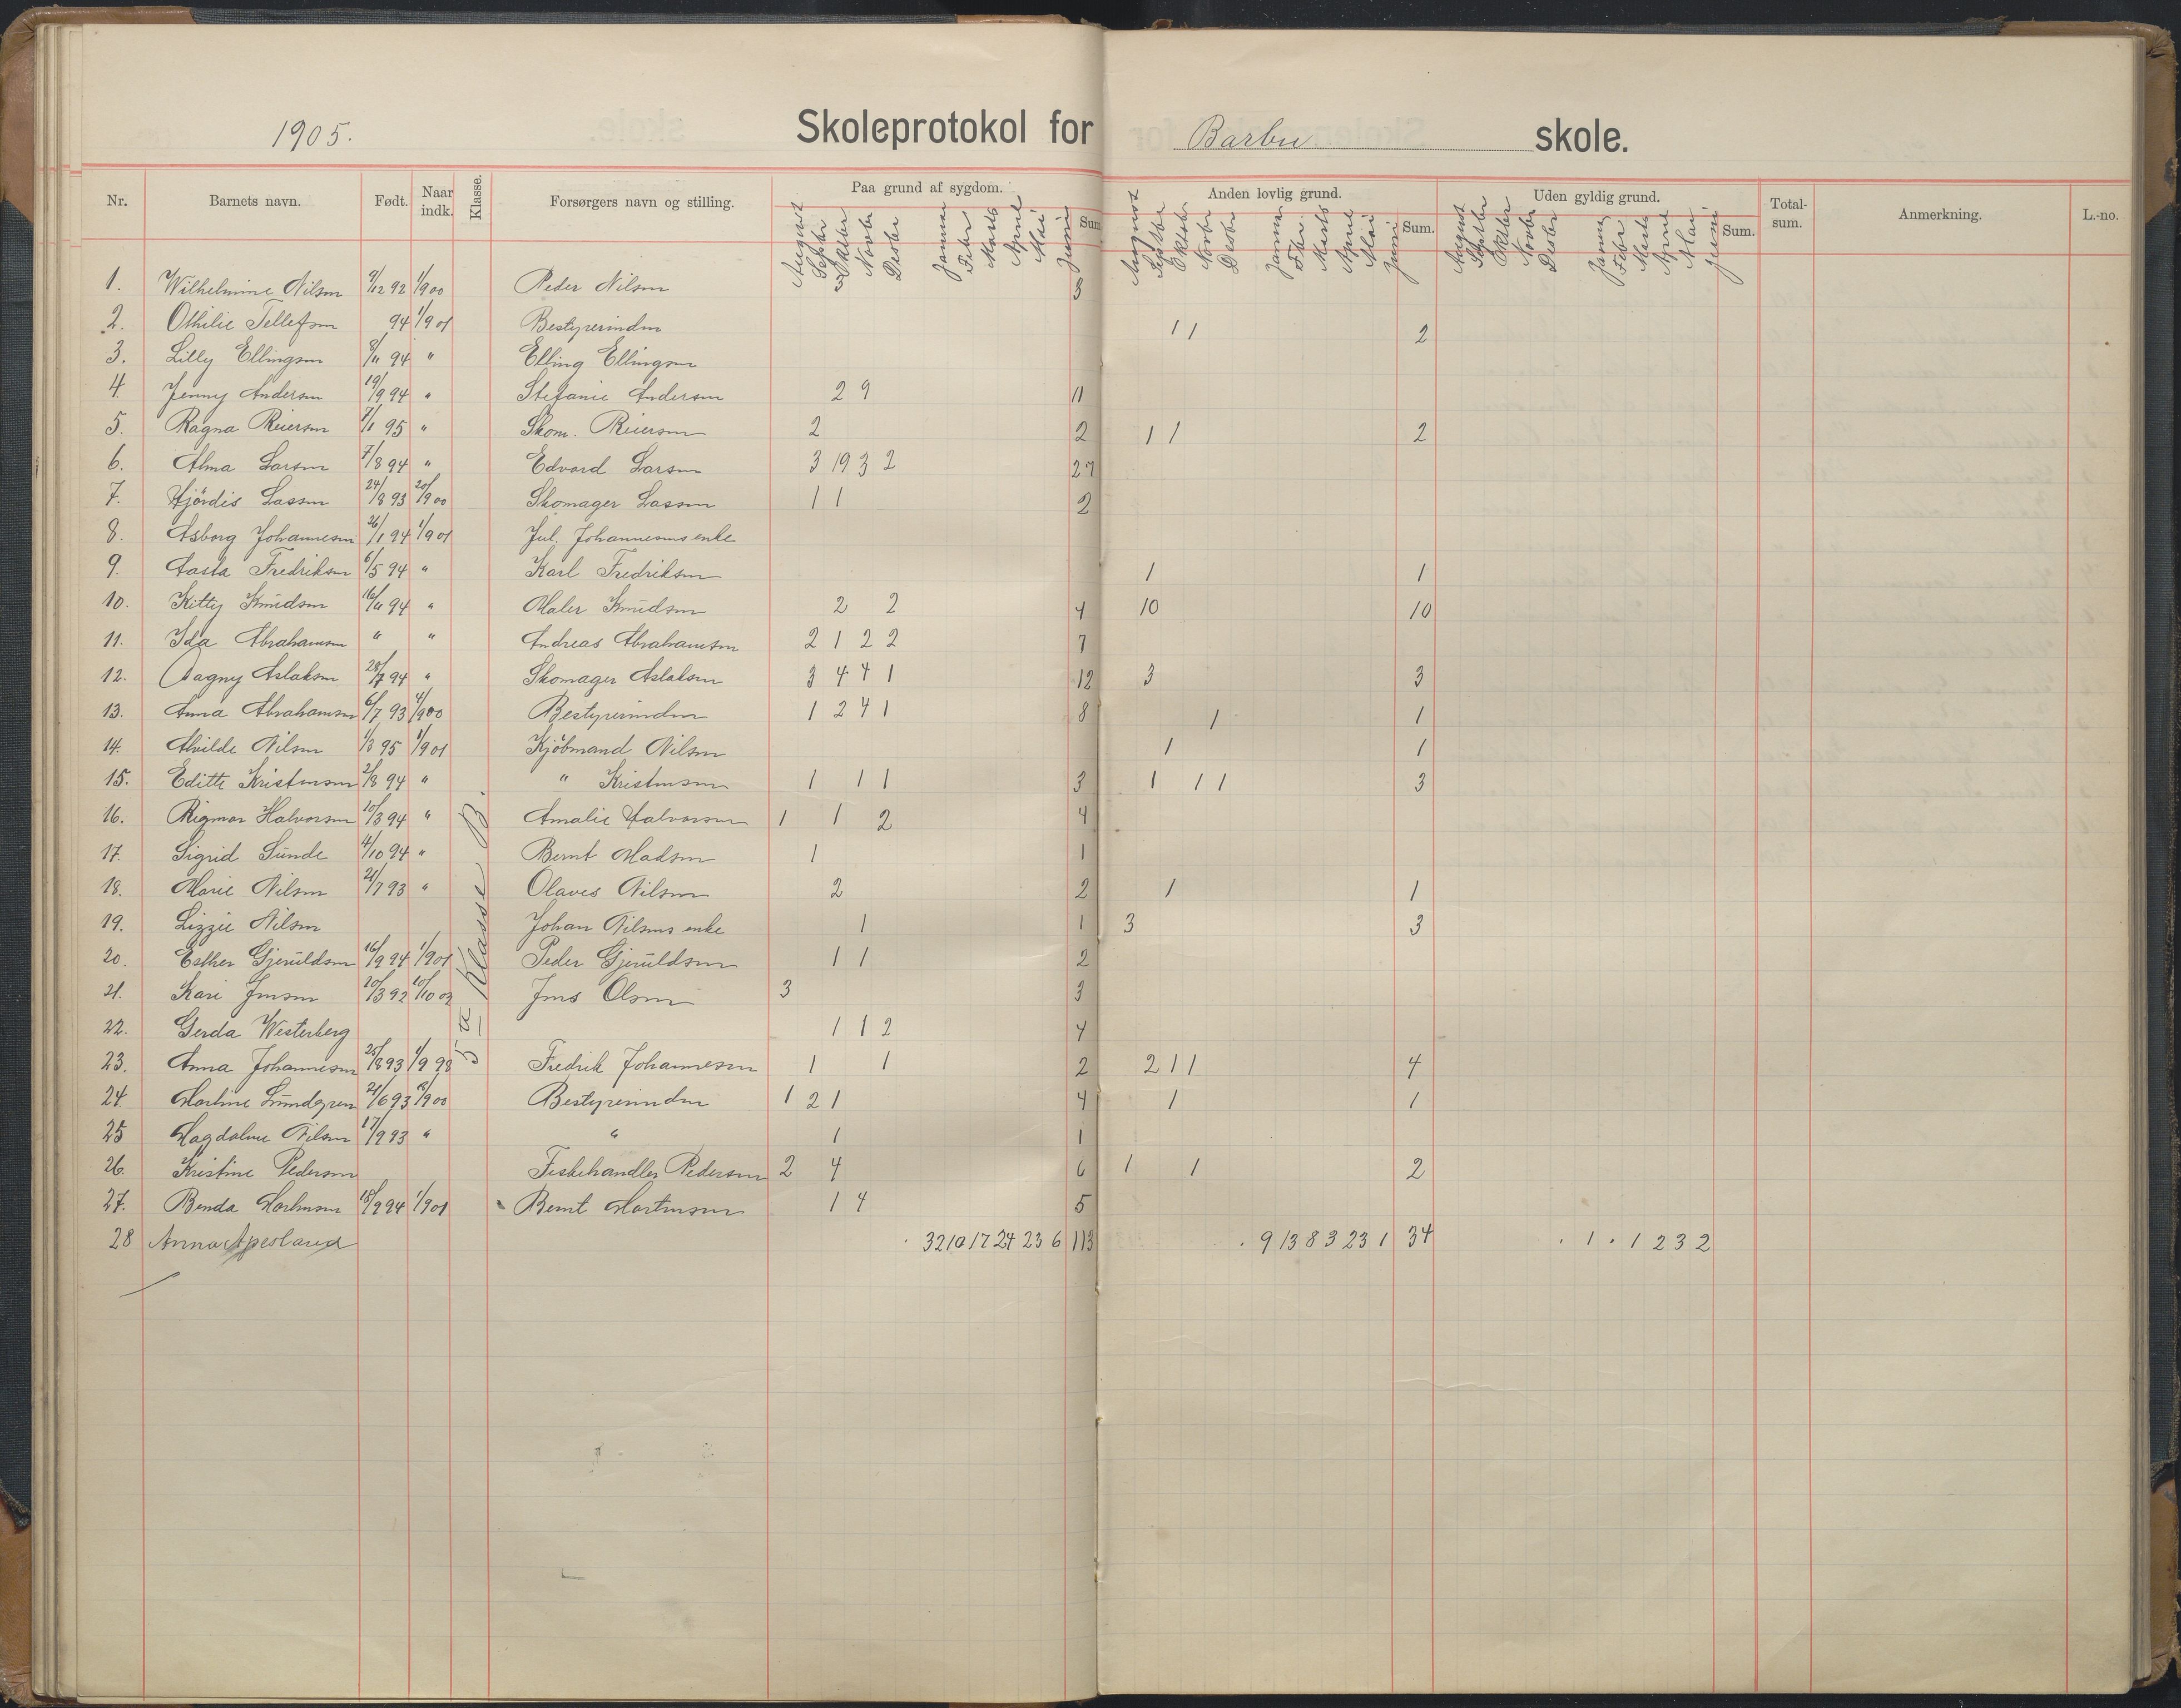 1905. Skoleprotokol for Barbu skole.
Nr. Barnets navn. Født. Naar indk. Klasse. Forsørgers navn og stilling. Paa grund af sygdom. Sum Anden lovlig grund. Sum. Uden gyldig grund. Sum. Total-sum. Anmerkning. L.-no.
August Septbr Oktbr Novbr Desbr Januar Febr Marts April Mai Juni August Septbr Oktbr Novbr Desbr Januar Febr. Marts April Mai Juni August Septbr Oktbr Novbr Desbr Januar Febr Marts April Mai Juni
5te Klasse B.
1. Wilhelmine Nilsen 9/12 92 1/9 00 Peder Nilsen 3 3
2. Othilie Tellefsen 94 1/9 01 Bestyrerinden 1 1 2
3. Lilly Ellingsen 8/11 94 " Elling Ellingsen
4. Jenny Andersen 19/9 94 " Stefanie Andersen 2 9 11
5. Ragna Reiersen 7/1 95 " Skom. Reiersen 2 2 1 1 2
6. Alma Larsen 7/8 94 " Edvard Larsen 3 19 3 2 27
7. Hjördis Lassen 24/8 93 20/9 00 Skomager Lassen 1 1 2
8. Asborg Johannesen 26/1 94 1/9 01 Jul. Johannesens enke
9. Aasta Fredriksen 6/5 94 " Karl Fredriksen 1 1
10. Kitty Knudsen 16/11 94 " Maler Knudsen 2 2 4 10 10
11. Ida Abrahamsen " " Andreas Abrahamsen 2 1 2 2 7
12. Dagny Aslaksen 28/7 94 " Skomager Aslaksen 3 4 4 1 12 3 3
13. Anna Abrahamsen 6/7 93 4/9 00 Bestyrerinden 1 2 4 1 8 1 1
14. Alvilde Nilsen 1/3 95 1/9 01 Kjöbmand Nilsen 1 1
15. Edith Kristensen 2/8 94 " " Kristensen 1 1 1 3 1 1 1 3
16. Rigmor Halvorsen 10/3 94 " Amalie Halvorsen 1 1 2 4
17. Sigrid Sunde 4/10 94 " Bernt Madsen 1 1
18. Marie Nilsen 21/7 93 " Olaves Nilsen 2 2 1 1
19. Lizzie Nilsen Johan Nilsens enke 1 1 3 3
20. Esther Gjeruldsen 16/9 94 1/9 01 Peder Gjeruldsen 1 1 2
21. Kari Jensen 20/3 92 10/10 02 Jens Olsen 3 3
22. Gerda Westerberg 1 1 2 4
23. Anna Johannesen 25/8 93 1/9 98 Fredrik Johannesen 1 1 2 2 1 1 4
24. Martine Lundgren 21/6 93 8/9 00 Bestyrerinden 1 2 1 4 1 1
25 Magdalene Nilsen 17/9 93 " " 1 1
26. Kristine Pedersen Fiskehandler Pedersen 2 4 6 1 1 2
27. Benda Martensen 18/9 94 1/9 01 Bernt Martensen 1 4 5
28 Anna Apesland 32 10 17 24 23 6 113 9 13 8 3 23 1 34 1 . 1 2 3 2